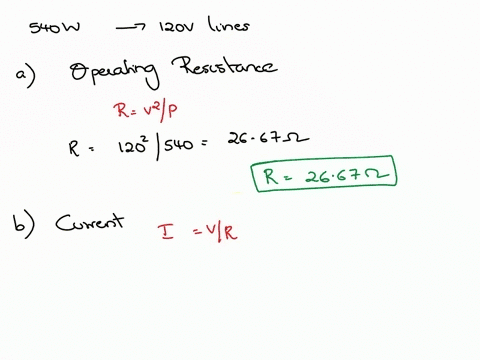 540W → 120V lines
a) Operating Resistance
R = V²/P
R = 120²/540 = 26.67Ω
R = 26.67Ω
b) Current I = V/R